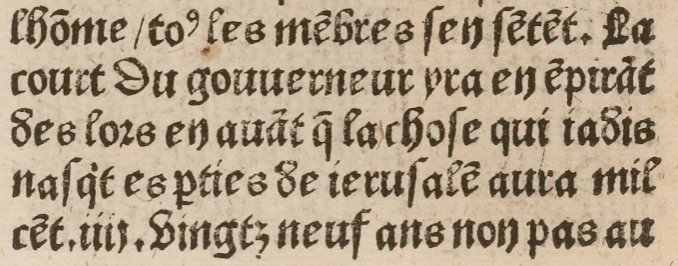 lhõme/to⁹ les mẽbres sen sẽtẽt. La
court Du gouuerneur yra en ẽpirãt
des lors en auãt q̃ la chose qui iadis
nasq̃t es ꝑties de ierusalẽ aura mil
cẽt.iiij.Vingtz neuf ans non pas au